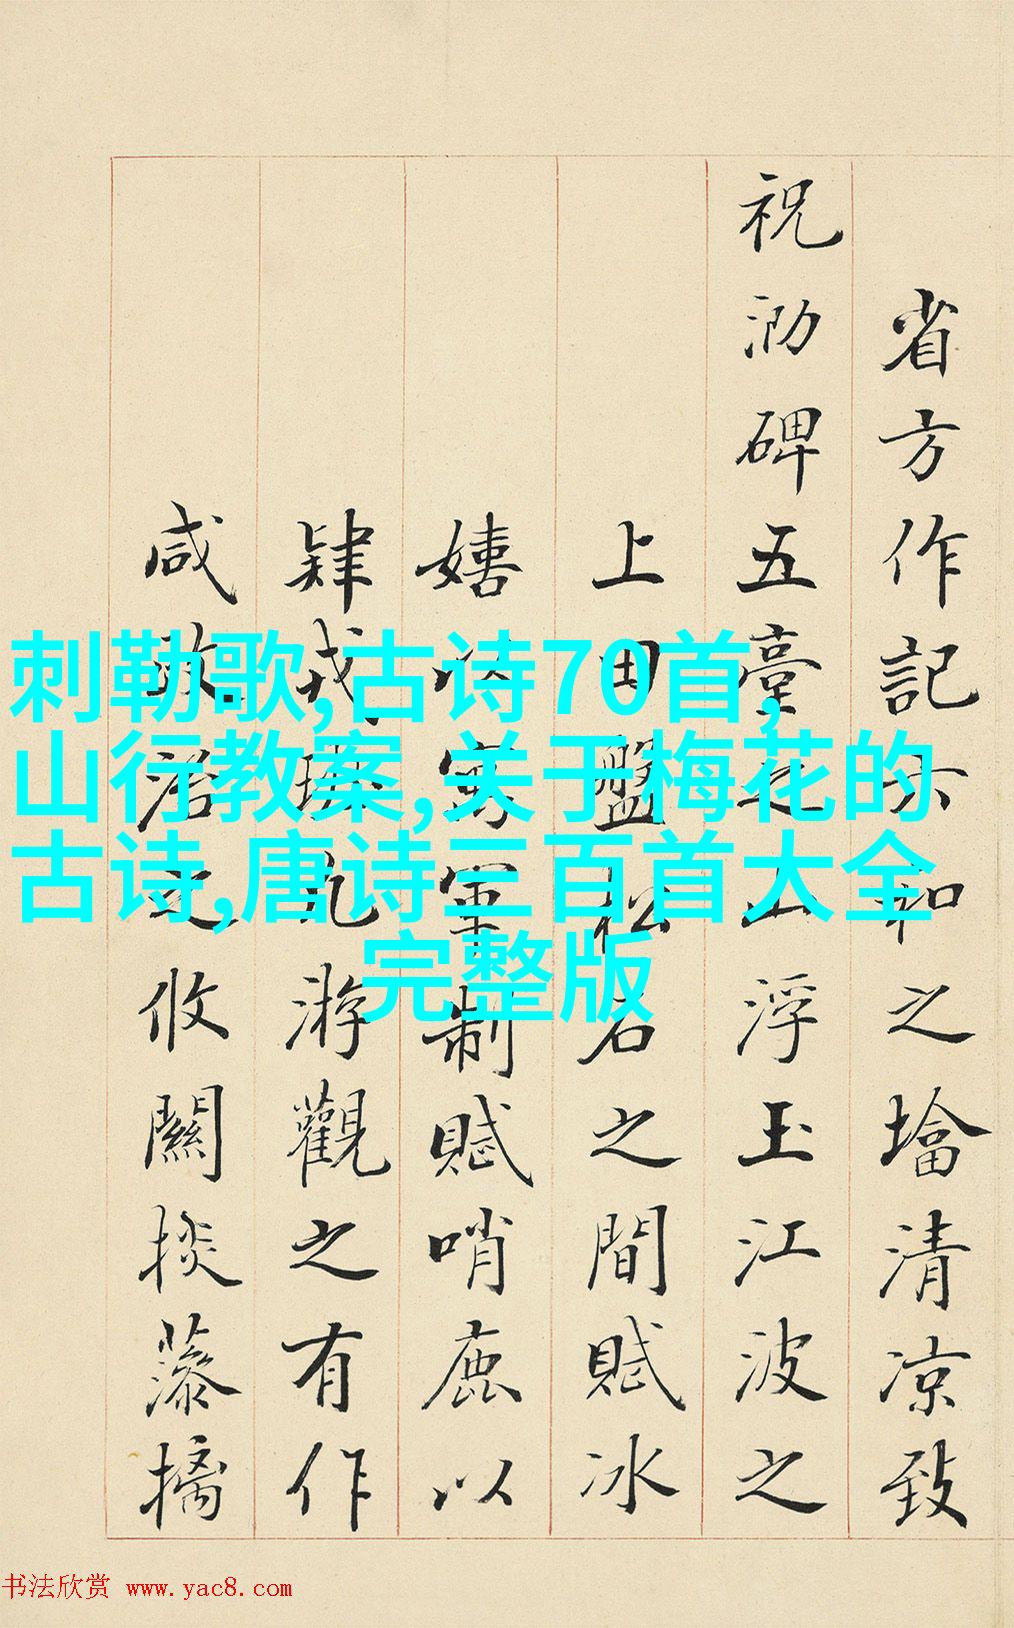 刺勒歌,古诗70首,
山行教案,关于梅花的
古诗,唐诗三百首大全
完整版
省方作記六和之墖清凉致
祝泐碑五臺之山浮玉江波之
上田盤松石之間賦冰
嬉以寓軍制賦哨鹿以
肄戎
游觀之有作
咸
收關掞藻摛
书法欣赏 www.yac8.com